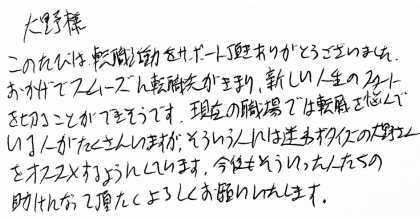 大野様
このたびは転職活動をサポート頂きありがとうございました。
おかげでスムーズに転職先がきまり、新しい人生のスタート
を切ることができそうです。現在の職場では転職を悩んで
いる人がたくさんいますが、そういう人には迷わずタイズの大野さん
をオススメするようにしています。今後もそういった人たちの
助けになって頂たくよろしくお願いいたします。